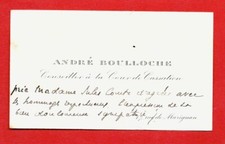 ANDRÉ BOULLOCHE
Conseiller à la Cour de Cassation
prie Madame Jules Comte d'agréer avec
ses hommages respectueux l'expression de sa
bien douloureuse sympathie
Marignan